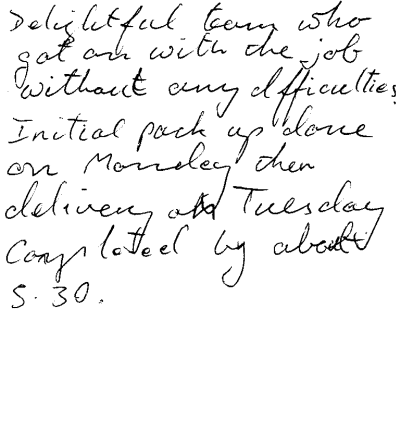 Delightful team who
got on with the job
without any difficulties
Initial pack up done
on Monday then
delivery on Tuesday
Completed by about
5.30.